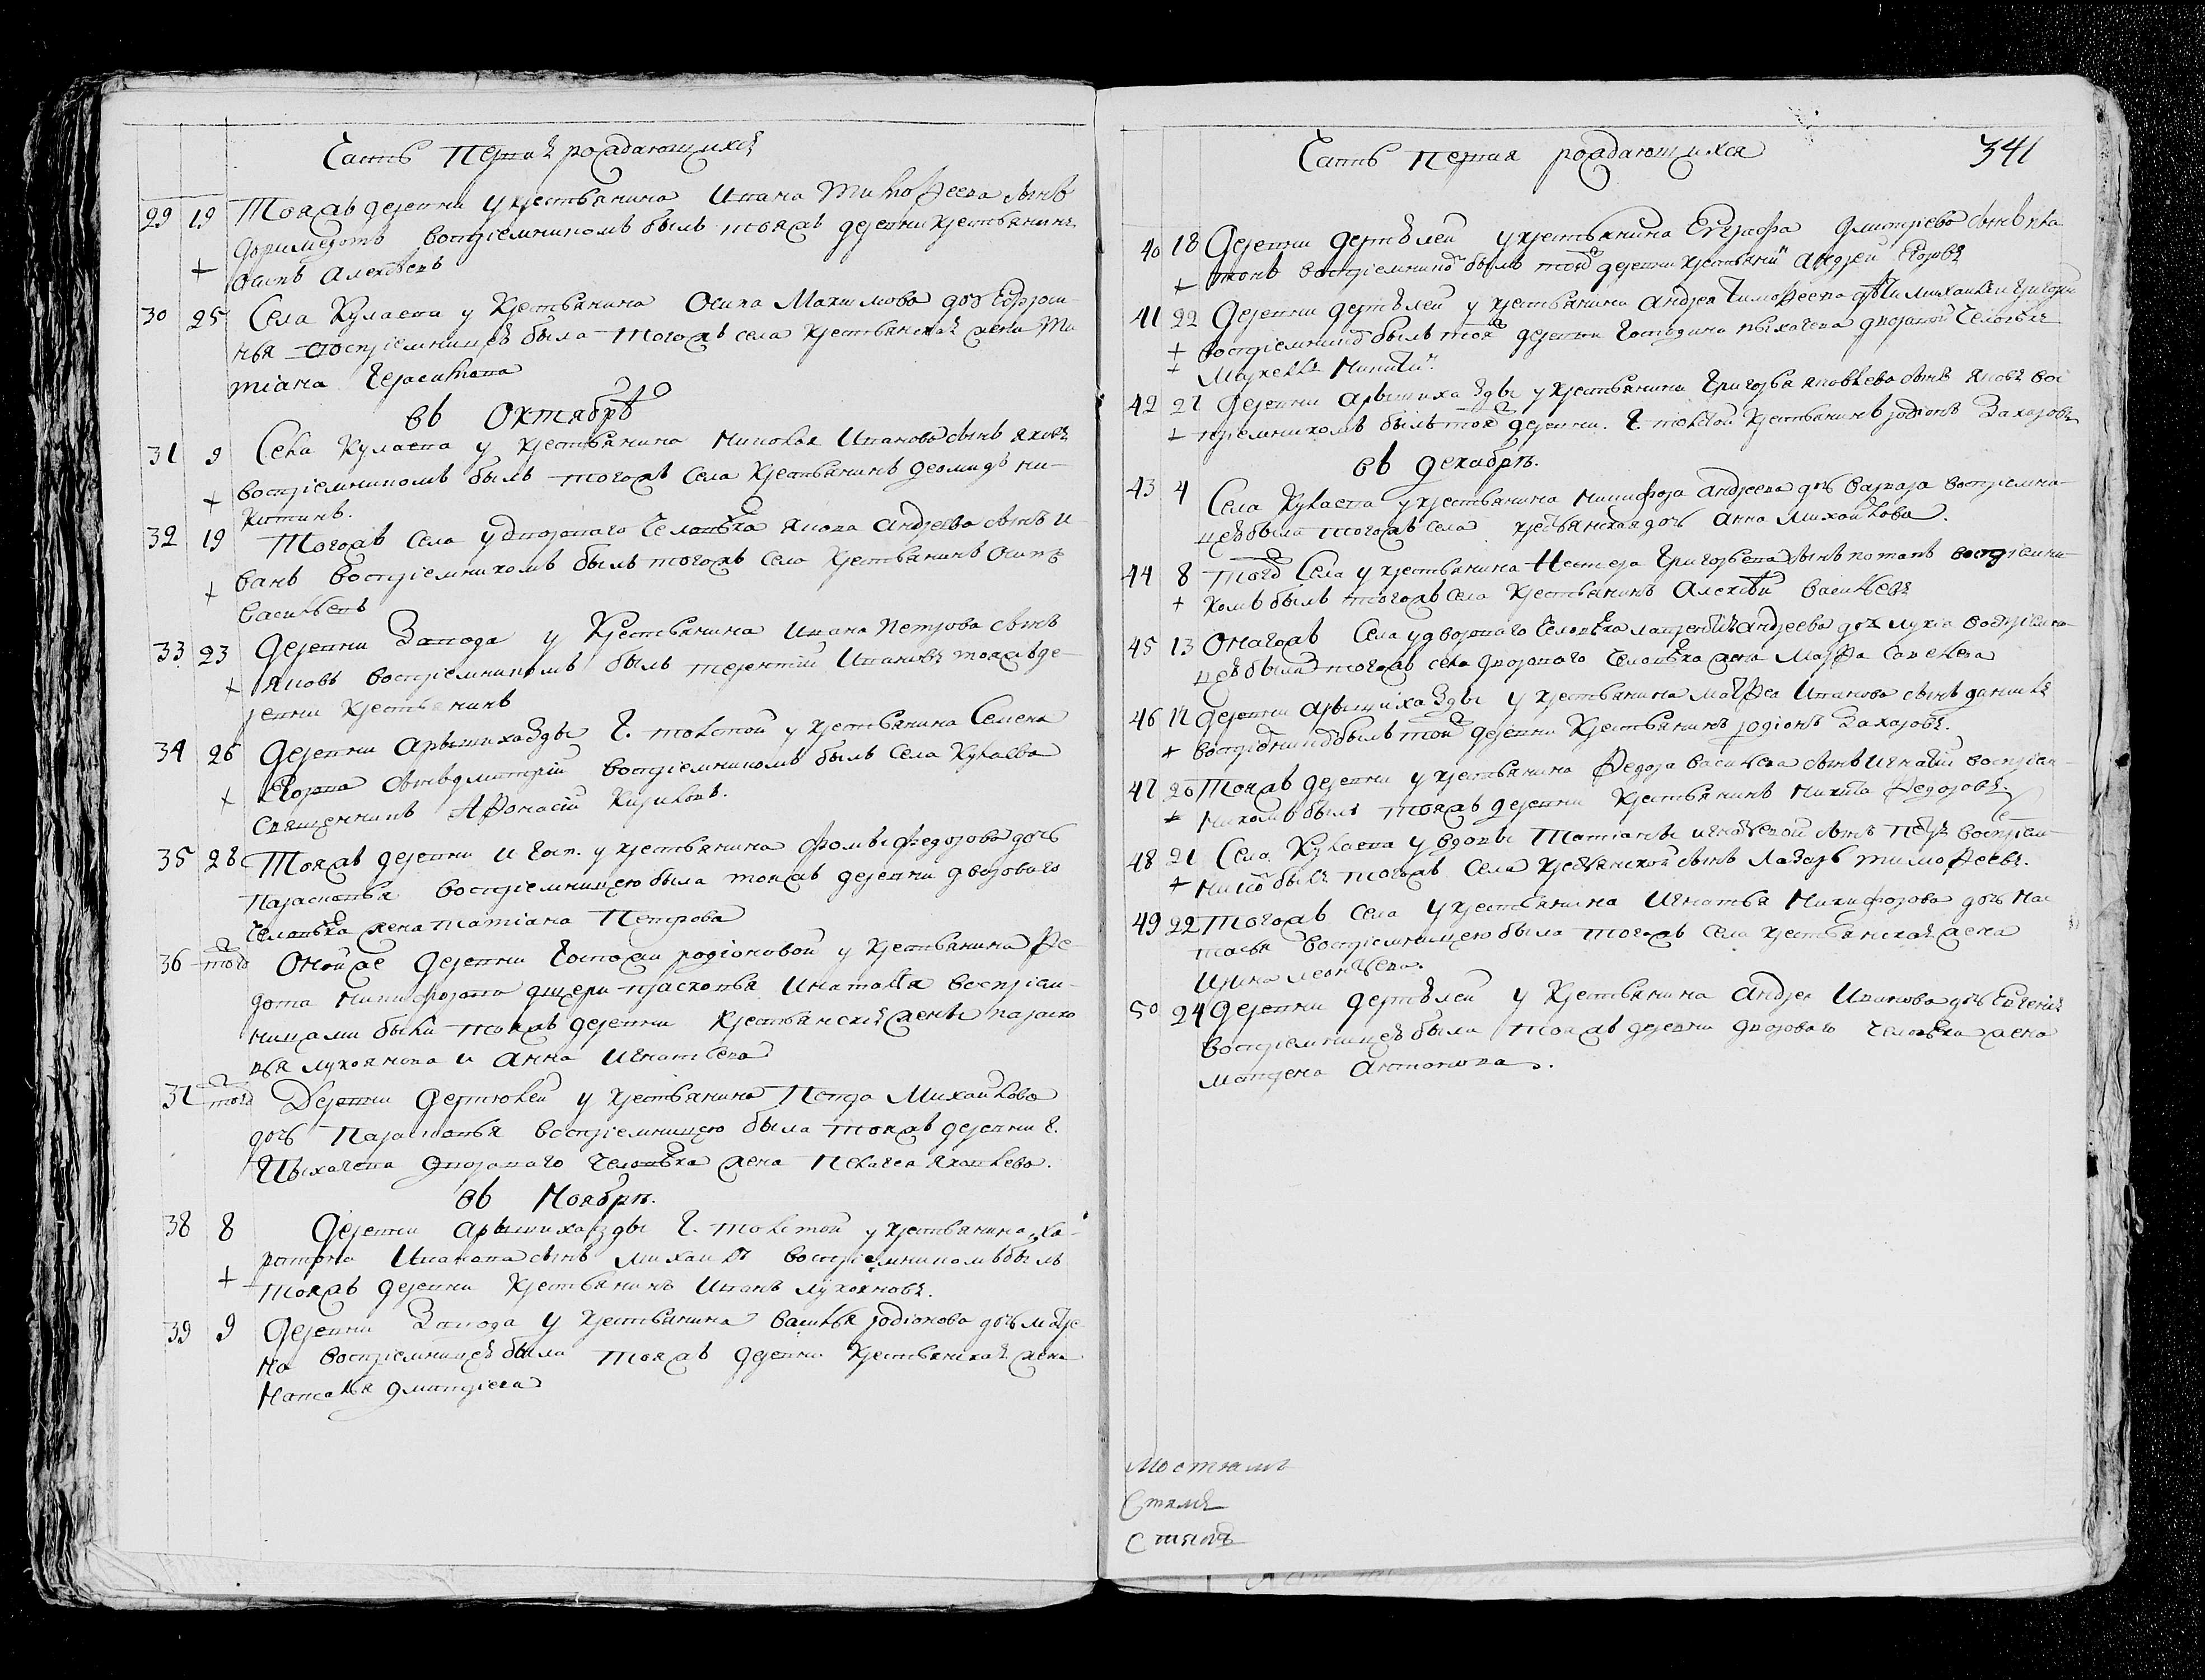 Часть Первая рождающихся
29 19 Тояжъ деревни у крестьянина Ивана Тимофеева сынъ
Доримедотъ воспріемникомъ былъ тояжъ деревни крестьянинъ
+ осипъ алексѣевъ
30 25 Села Кулаева у Крестьянина Осипа Максимова дочь Ефроси-
нья воспріемницею была тогожъ села крестьянская жена Та
тіана Герасимова
въ Октябрѣ
31 9 Села Кулаева у крестьянина Николая Иванова сынъ яковъ
+ воспріемникомъ былъ тогожъ села крестьянинъ деомидъ ни-
китинъ.
32 19 Тогожъ села у двороваго человѣка якова андреева сынъ и
+ ванъ воспріемникомъ былъ тогожъ села крестьянинъ Осипъ
васильевъ
33 23 Деревни Завода у Крестьянина Ивана Петрова сынъ
+ яковъ воспріемникомъ былъ терентій Ивановъ тояжъ де-
ревни крестьянинъ
34 26 Деревни арышихазды Г. толстой у крестьянина Семена
+ Егорова сынъ дмитрій воспріемникомъ былъ села Кулаева
священникъ Афонасій Кириловъ.
35 28 Тояжъ деревни и госп. у крестьянина фомы федорова дочь
Парасковья воспріемницею была тояжъ деревни двороваго
человѣка жена татіана Петрова
36 того Оной же деревни Госпожи родіоновой у крестьянина Фе-
дота никифорова дщери прасковья и наталья воспріем-
ницами были тояжъ деревни крестьянскія жены параско
вья лукоянова и анна игнатьева
37 того Деревни Дертюлей у крестьянина Петра Михайлова
дочь Парасковья воспріемницею была тояжъ деревни г.
Пыхачева двороваго человѣка жена Пелагея яковлева.
въ Ноябрѣ.
38 8 Деревни арышихазды Г. толстой у крестьянина ха-
+ ритона Иванова сынъ михаилъ воспріемникомъ былъ
тояжъ деревни крестьянинъ Иванъ лукояновъ.
39 9 Деревни Завода у крестьянина василья родіонова дочь матре
на воспріемницею была тояжъ деревни крестьянская жена
наталья дмитріева
Часть первая рождающихся 341
40 18 Деревни дертѣлей у крестьянина Евграфа дмитріева сынъ пла
+ тонъ воспріемникомъ былъ той деревни крестьянинъ андрей Егоровъ
41 22 Деревни дертѣлей у крестьянина андрея тимофеева дѣти михаилъ и григорій
+ воспріемникъ былъ той деревни господина пыхачева дворовой человѣкъ
+ маркелъ никитинъ.
42 27 Деревни арышихазды у крестьянина григорья яковлева сынъ яковъ вос
+ пріемникомъ былъ той деревни. г. толстой крестьянинъ родіонъ Захаровъ
въ декабрѣ.
43 4 Села Кулаева у крестьянина никифора андреева дочь варвара воспріемни-
цею была тогожъ села крестьянская дочь анна михайлова.
44 8 того Села у крестьянина Нестера григорьева сынъ потапъ воспріемни-
+ комъ былъ тогожъ села крестьянинъ алексѣй васильевъ
45 13 Онагожъ села у двороваго человѣка лаврентія андреева дочь лукія воспріемни-
цею была тогожъ села двороваго человѣка жена марфа савельева
46 17 деревни арышихазды у крестьянина матфея Иванова сынъ данилъ
+ воспріемникъ былъ той деревни крестьянинъ родіонъ Захаровъ.
47 20 Тояжъ деревни у крестьянина федора васильева сынъ игнатій воспріем-
+ никомъ былъ тояжъ деревни крестьянинъ никита федоровъ.
48 21 Села Кулаева у вдовы татіаны игнатьевой сынъ петръ воспріем-
+ никъ былъ тогожъ села крестьянской сынъ лазарь тимофеевъ.
49 22 Тогожъ села у крестьянина игнатья никифорова дочь нас
тасья воспріемницею была тогожъ села крестьянская жена
Ирина леонтьева.
50 24 Деревни дертѣлей у крестьянина андрея Иванова дочь Евгенія
воспріемницею была тояжъ деревни двороваго человѣка жена
матрена антонова.